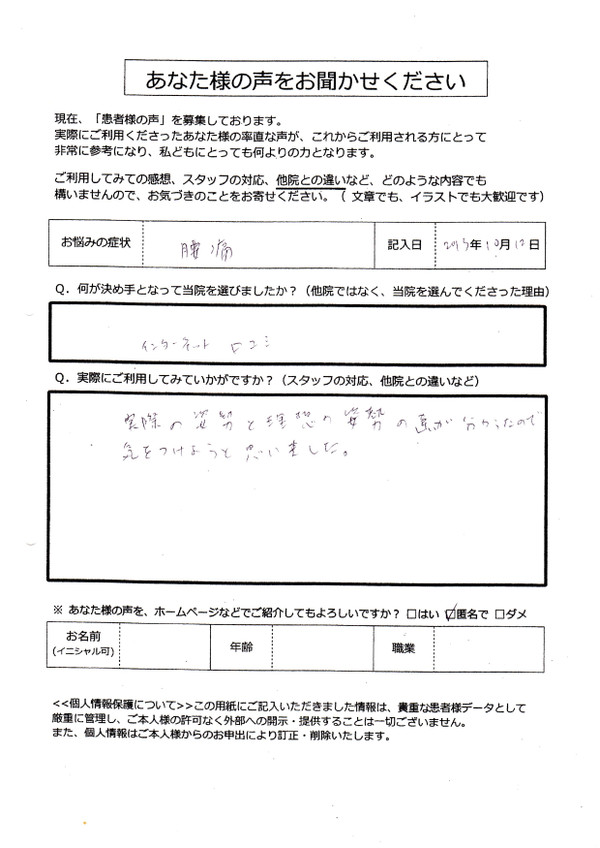 あなた様の声をお聞かせください
現在、「患者様の声」を募集しております。
実際にご利用くださったあなた様の率直な声が、これからご利用される方にとって
非常に参考になり、私どもにとっても何よりの力となります。
ご利用してみての感想、スタッフの対応、他院との違いなど、どのような内容でも
構いませんので、お気づきのことをお寄せください。（ 文章でも、イラストでも大歓迎です）
お悩みの症状 腰痛 記入日 2013年10月12日
Q．何が決め手となって当院を選びましたか？（他院ではなく、当院を選んでくださった理由）
インターネット 口コミ
Q．実際にご利用してみていかがですか？（スタッフの対応、他院との違いなど）
実際の姿勢と理想の姿勢の差が分かったので
気をつけようと思いました。
※ あなた様の声を、ホームページなどでご紹介してもよろしいですか？ □はい ☑匿名で □ダメ
お名前 年齢 職業
(イニシャル可)
<<個人情報保護について>>この用紙にご記入いただきました情報は、貴重な患者様データとして
厳重に管理し、ご本人様の許可なく外部への開示・提供することは一切ございません。
また、個人情報はご本人様からのお申出により訂正・削除いたします。